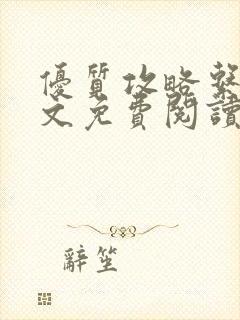 優質攻略
文免費閱讀
辭笙